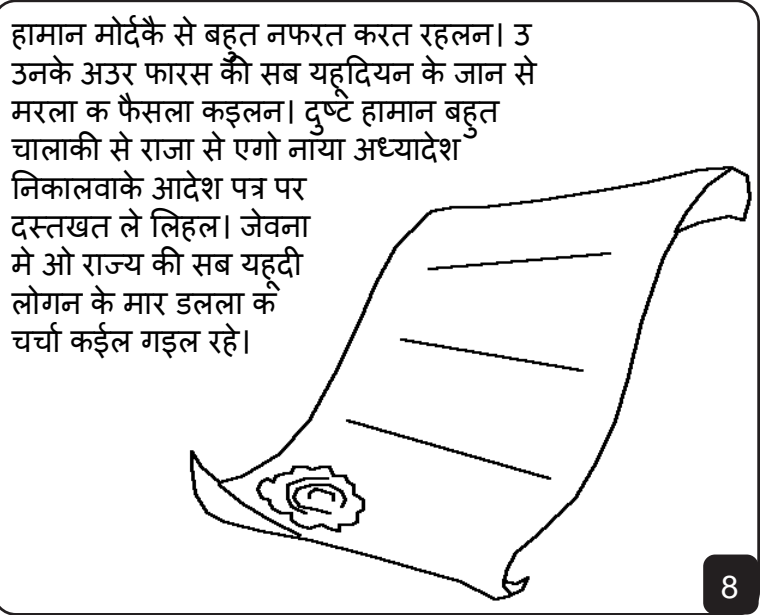 हामान मोर्दकै से बहुत नफरत करत रहलन। उ
उनके अउर फारस की सब यहूदियन के जान से
मरला क फैसला कइलन। दुष्ट हामान बहुत
चालाकी से राजा से एगो नाया अध्यादेश
निकालवाके आदेश पत्र पर
दस्तखत ले लिहल। जेवना
मे ओ राज्य की सब यहूदी
लोगन के मार डलला क
चर्चा कईल गइल रहे।
8